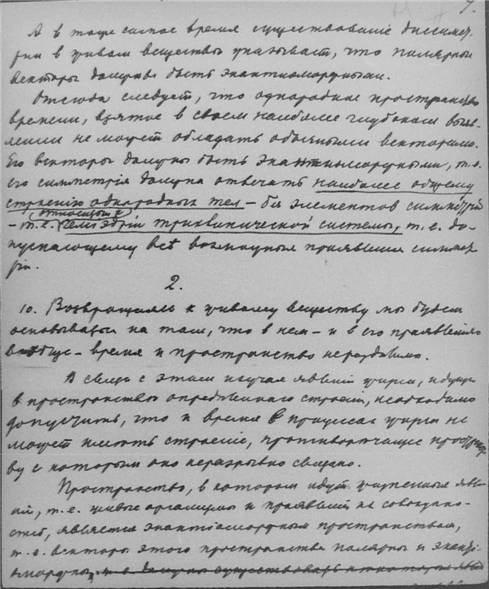 7.
А в тоже самое время существованiе диссимет-
рiи в живом веществе указывает, что полярные
векторы должны быть энантиоморфными.
Отсюда следует, что однородное пространство
времени, взятое в своем наиболее глубоком выяв-
лении не может обладать обычными векторами.
Его векторы должны быть энантиоморфными, т.е.
его симметрiя должна отвечать наиболее общему
строенiю однородных тел – без элементов симметрiи
относящихся к
– т.е. гемиэдрiи триклинической системы, т.е. до-
пускающему все возможные проявления симмет-
рiи.
2.
10. Возвращаясь к живому веществу мы будем
основываться на том, что в нем – и в его проявленiях
вообще – время и пространство нераздельно.
В связи с этим изучая явленiя жизни, идущiя
в пространстве определенного строенiя, необходимо
допустить, что и время в процессах жизни не
может иметь строенiе, противоречащее пространст-
ву с которым оно неразрывно связано.
Пространство, в котором идут жизненные явле-
нiя, т.е. живые организмы и проявленiя их совокупно-
стей, является энантiоморфным пространством,
т.е. векторы этого пространства полярны и энантi-
оморфны,